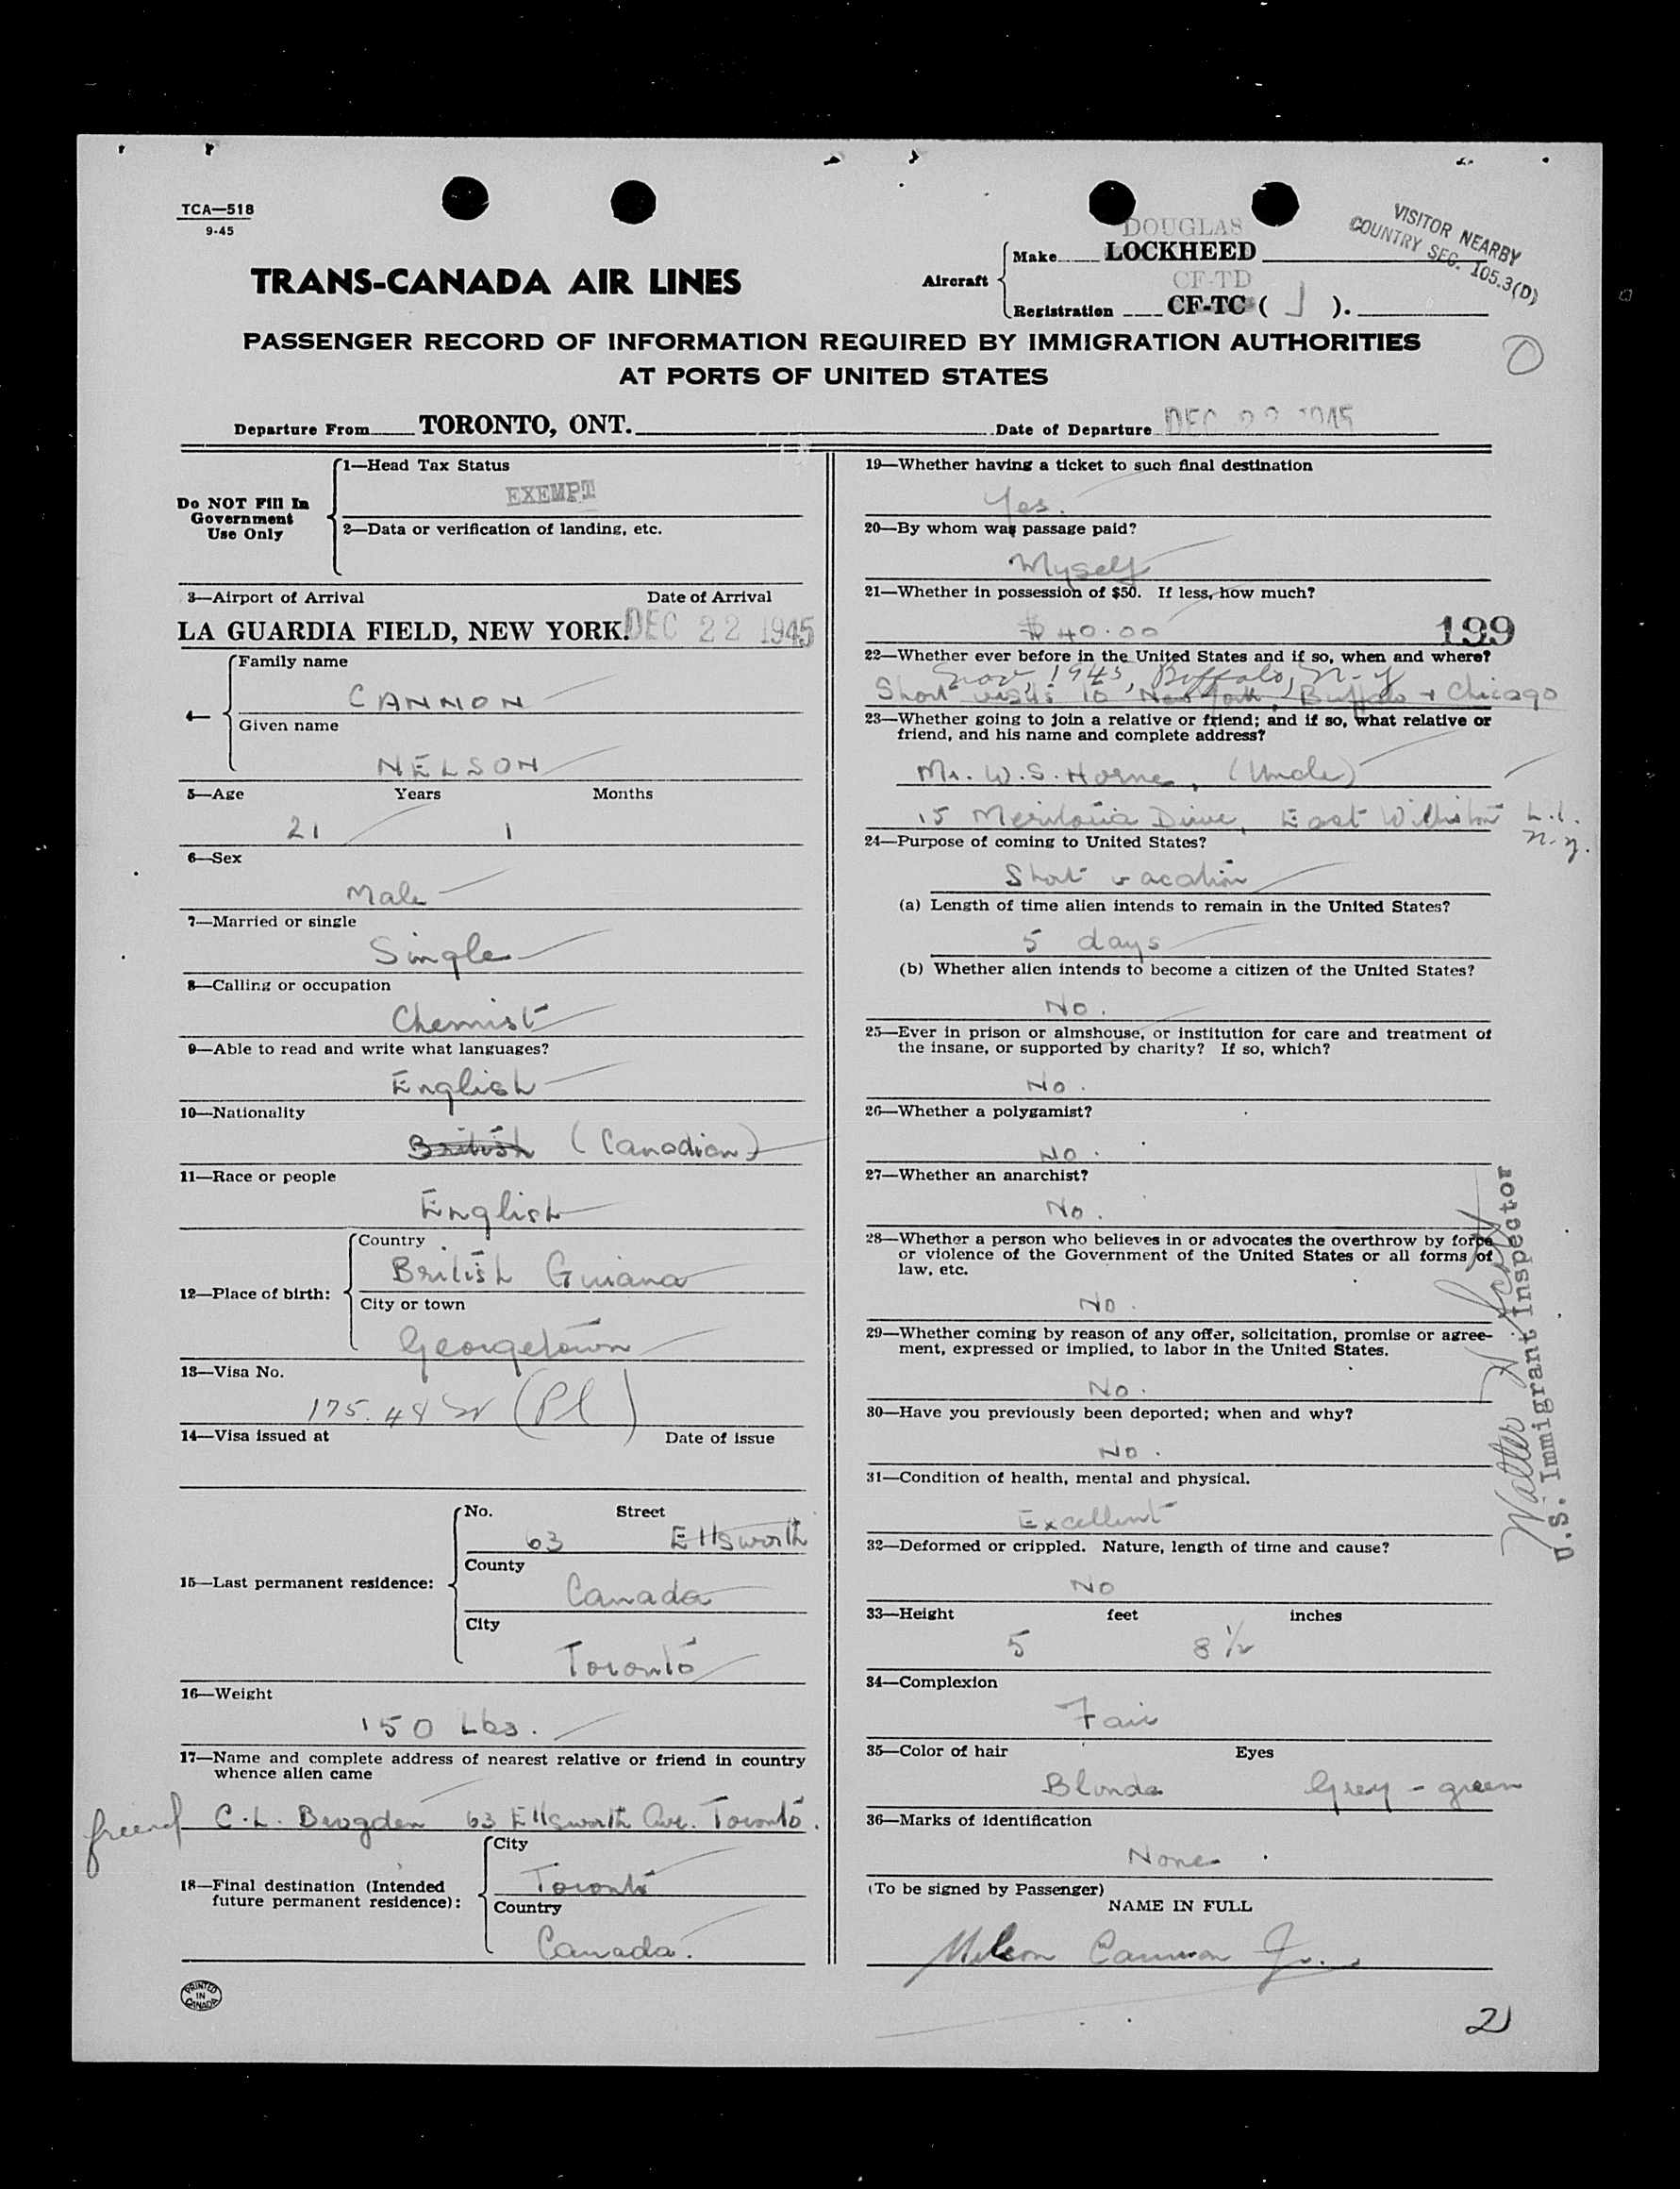 TCA—518
9-45
VISITOR NEARBY
COUNTRY SEC. 105.3(D)
DOUGLAS
Make LOCKHEED
Aircraft
CF-TD
Registration CF-TC ( J ).
TRANS-CANADA AIR LINES
PASSENGER RECORD OF INFORMATION REQUIRED BY IMMIGRATION AUTHORITIES
AT PORTS OF UNITED STATES
O
Departure From TORONTO, ONT. Date of Departure DEC 22 1945
Do NOT Fill In
Government
Use Only
1—Head Tax Status
EXEMPT
2—Data or verification of landing, etc.
3—Airport of Arrival Date of Arrival
LA GUARDIA FIELD, NEW YORK. DEC 22 1945
4—
Family name
CANNON
Given name
NELSON
5—Age Years Months
21 1
6—Sex
Male
7—Married or single
Single
8—Calling or occupation
Chemist
9—Able to read and write what languages?
English
10—Nationality
British (Canadian)
11—Race or people
English
12—Place of birth:
Country
British Guiana
City or town
Georgetown
13—Visa No.
175.44 (Pl)
14—Visa issued at Date of issue
15—Last permanent residence:
No. Street
63 Ellsworth
County
Canada
City
Toronto
16—Weight
150 Lbs.
17—Name and complete address of nearest relative or friend in country
whence alien came
friend C.L. Brogden 63 Ellsworth Ave. Toronto.
18—Final destination (Intended
future permanent residence):
City
Toronto
Country
Canada.
PRINTED
IN
CANADA
19—Whether having a ticket to such final destination
Yes.
20—By whom was passage paid?
Myself
21—Whether in possession of $50. If less, how much?
$40.00
199
22—Whether ever before in the United States and if so, when and where?
Nov, 1945, Buffalo, N-Y
Short visits to New York, Buffalo + Chicago
23—Whether going to join a relative or friend; and if so, what relative or
friend, and his name and complete address?
Mr. W.S. Horne, (Uncle)
15 Drive, East Williston L.I.
N-Y.
24—Purpose of coming to United States?
Short vacation
(a) Length of time alien intends to remain in the United States?
5 days
(b) Whether alien intends to become a citizen of the United States?
No.
25—Ever in prison or almshouse, or institution for care and treatment of
the insane, or supported by charity? If so, which?
No.
26—Whether a polygamist?
No.
27—Whether an anarchist?
No.
28—Whether a person who believes in or advocates the overthrow by force
or violence of the Government of the United States or all forms of
law, etc.
No.
29—Whether coming by reason of any offer, solicitation, promise or agree-
ment, expressed or implied, to labor in the United States.
No.
30—Have you previously been deported; when and why?
No.
31—Condition of health, mental and physical.
Excellent
32—Deformed or crippled. Nature, length of time and cause?
No
33—Height feet inches
5 8½
34—Complexion
Fair
35—Color of hair Eyes
Blonde Grey - green
36—Marks of identification
None.
(To be signed by Passenger)
NAME IN FULL
Nelson Cannon Jr.
Walter
U.S. Immigrant Inspector
2